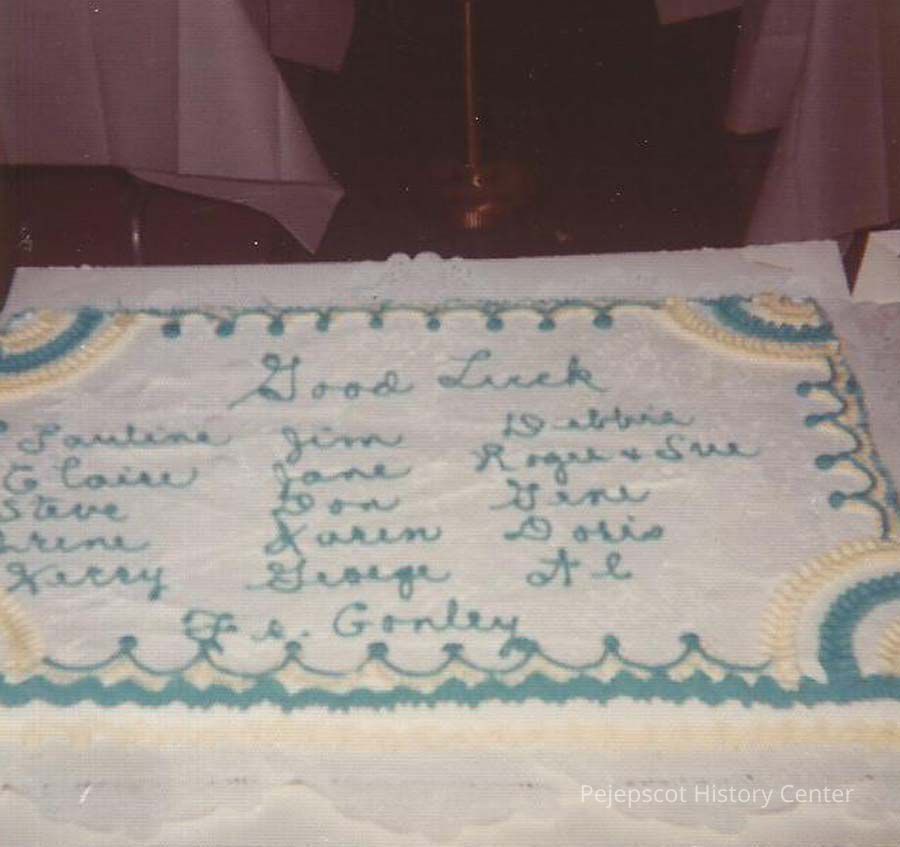 Good Luck
Pauline Jim Debbie
Claire Jane Roger & Sue
Steve Don Gene
Irene Karen Doris
Kerry George Al
Fr. Gonley
Pejepscot History Center